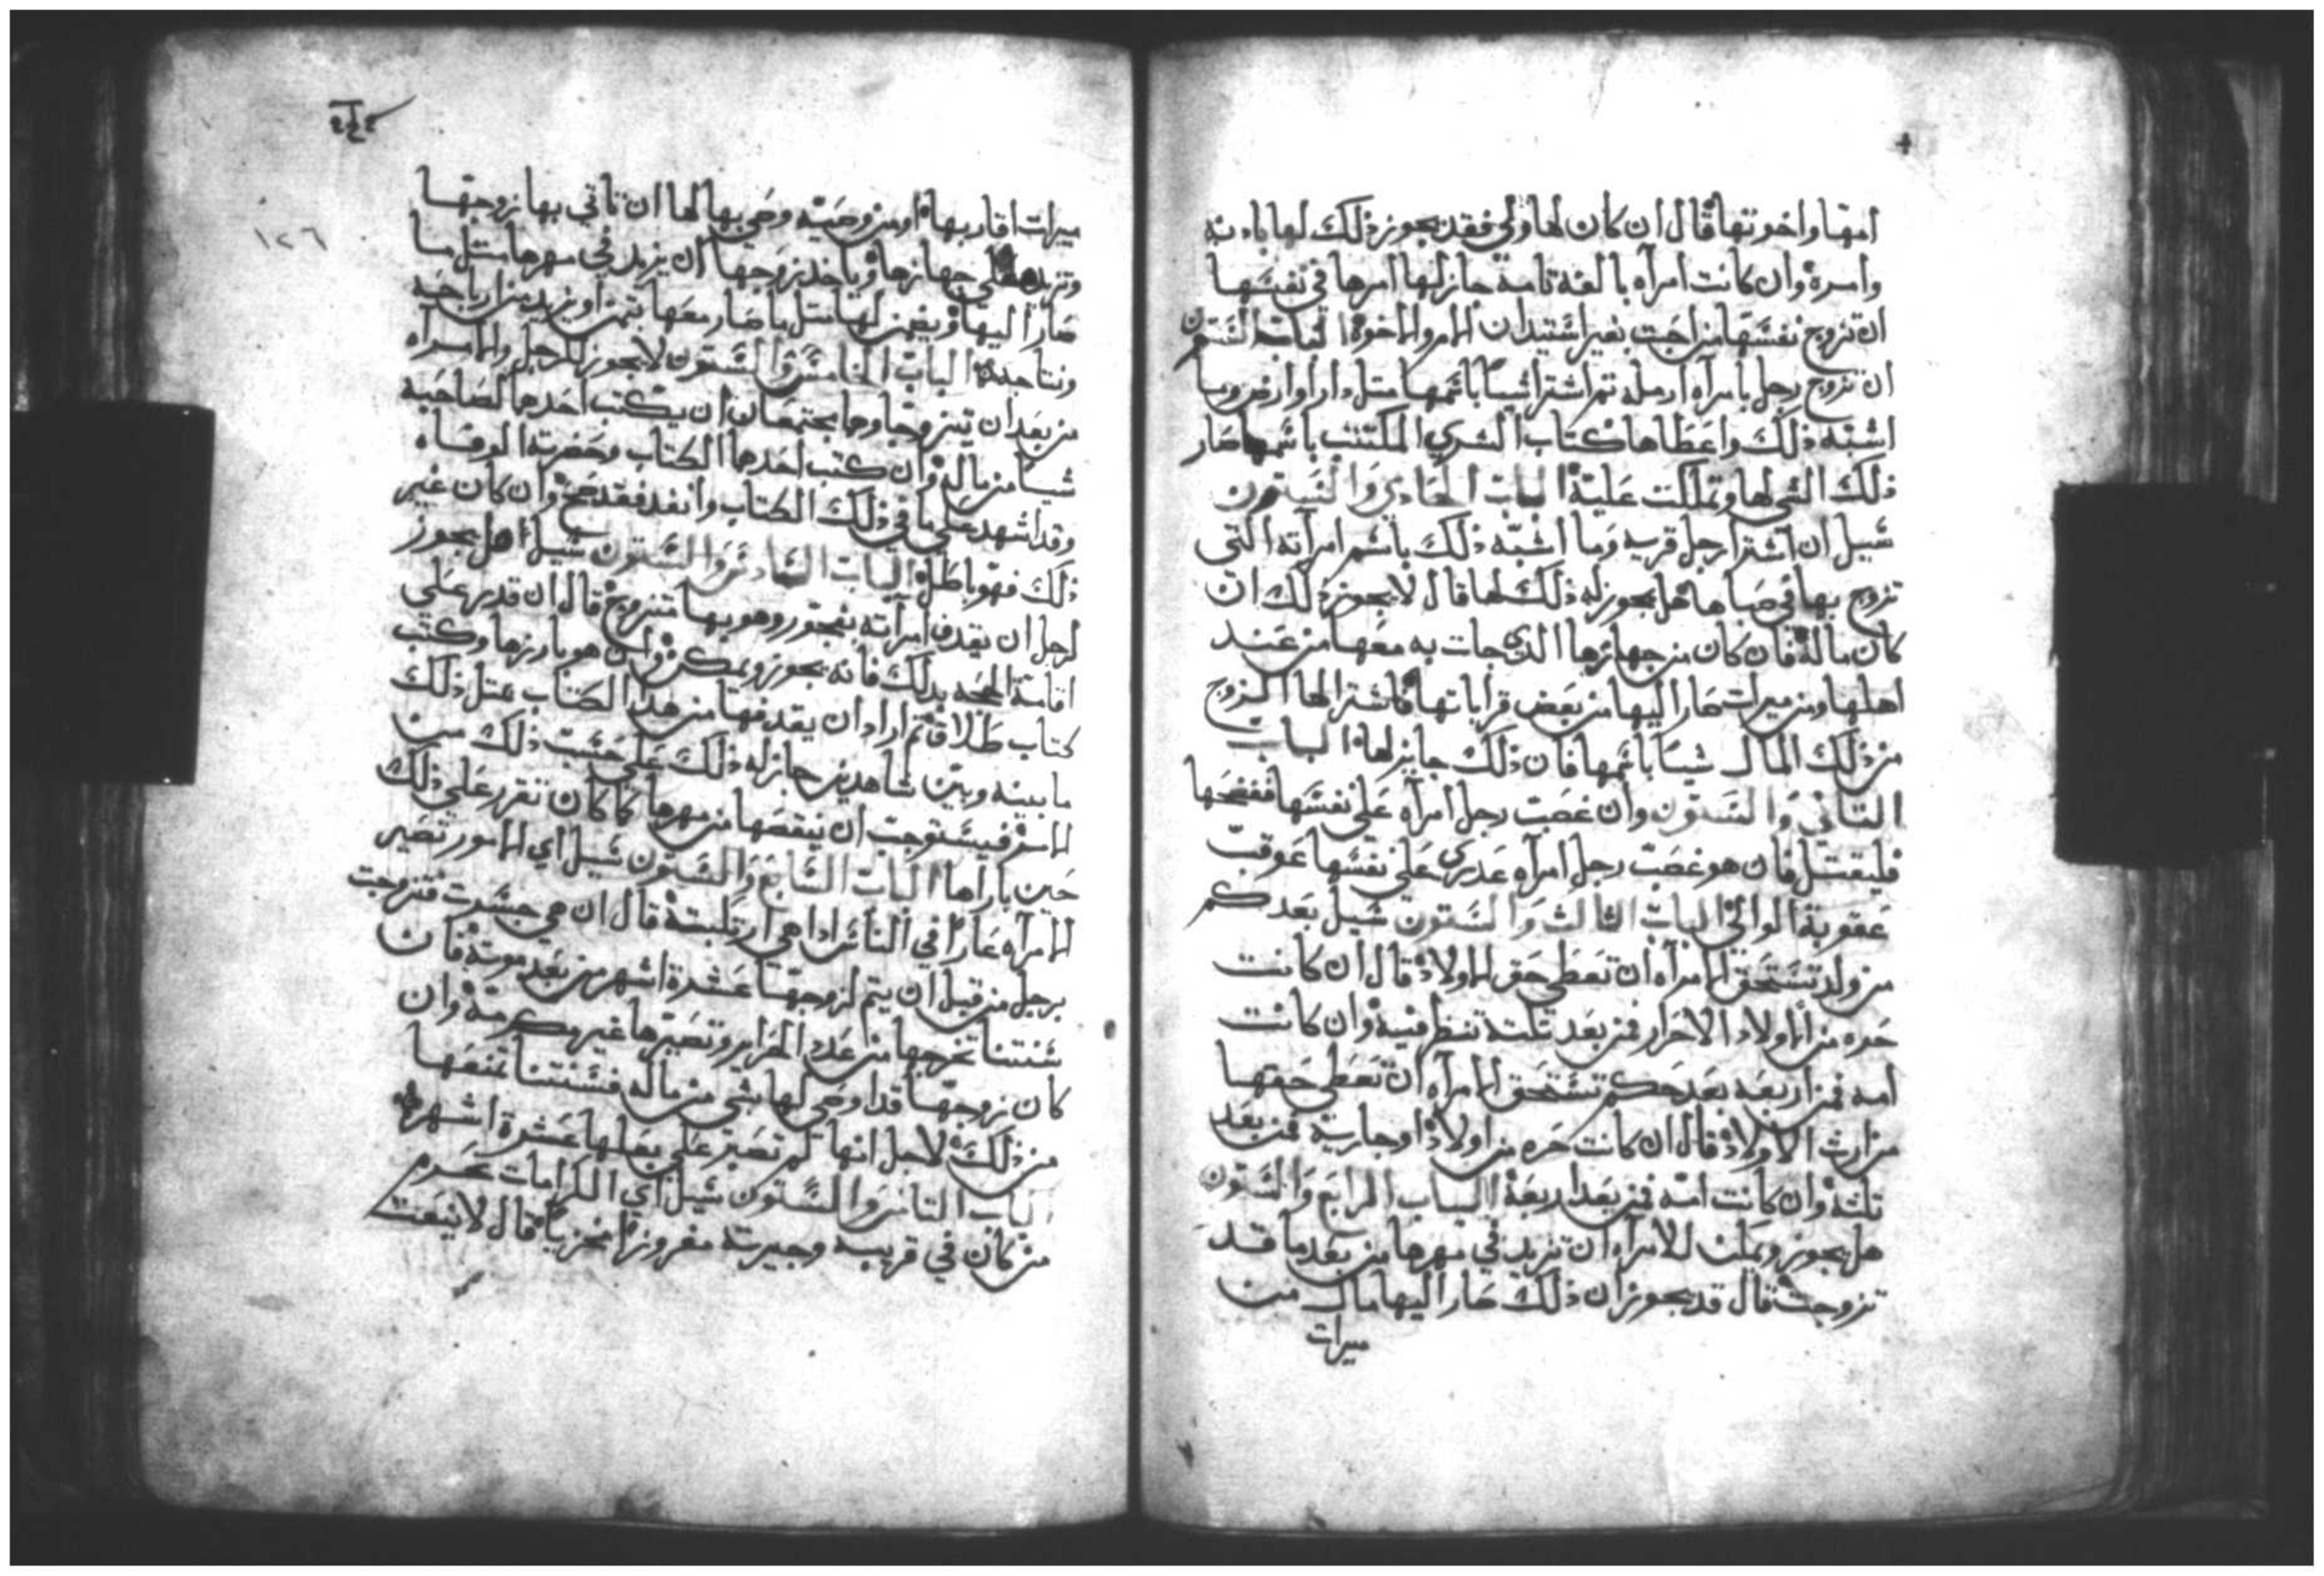 امها واخوتها قال ان كان لها ولي فقد يجوز ذلك لها باذنه
وامره وان كانت امرآه بالغه تامة جاز لها امرها في نفسها
ان تزوج نفسها من احبت بغير استيدان الام والاخوة الباب الستون
ان تزوج رجل بامرآه ارمله تم اشترا شيا باسمها متل دار او ارض وما
اشبه ذلك واعطاها كتاب الشري المكتتب باسمها صار
ذلك الشي لها وتملكت عليه الباب الحادي والستون
سيل ان اشترا رجل قريه وما اشبه ذلك باسم امرآته التي
تزوج بها في صباها هل يجوز له ذلك لها قال لا يجوز ذلك ان
كان ماله فان كان من جهازها الدي جات به معها من عند
اهلها ومن ميرات صار اليها من بعض قراباتها فاشترا لها الزوج
من ذلك المال شيا باسمها فان ذلك جايز لها الباب
التاني والستون وان غصب رجل امرآه على نفسها ففضحها
فليقتل فان هو غصب رجل امرآه عدرى على نفسها عوقب
عقوبة الوالي الباب الثالث والستون سيل بعد كم
من ولد تستحق الامرآه ان تعطي حق الاولاد قال ان كانت
حره من اولاد الاحرار فمن بعد تلتة تنظر فيه وان كانت
امه فمن اربعه بعد كم تستحق الامرآه ان تعطى حقها
من ارث الاولاد قال ان كانت حره من اولاد او جارية فمن بعد
تلثه وان كانت امه فمن بعد اربعة الباب الرابع والستون
هل يجوز ويمكن للامرآه ان تزيد في مهرها من بعد ما قد
تزوجت قال قد يجوز ان ذلك صار اليها مال من
ميرات
١٢٦
ميرات اقاربها او من وصيته وصي بها لها ان تاتي بها زوجها
وتزيد على جهازها وياخد زوجها ان يزيد في مهرها متل ما
صار اليها ويضمن لها متل ما صار معها بتمن او بزيد من ارباحه
ونتاجه الباب الخامس والستون لا يجوز للرجل والامرآه
من بعد ان يتزوجا وهما يجتمعان ان يكتب احدهما لصاحبه
شيا من ماله وان كتب احدهما الكتاب وحضرته الوفاه
وقد اشهد على ما في ذلك الكتاب وانفد فقد صح وان كان غير
ذلك فهو باطل الباب السادس والستون سيل هل يجوز
لرجل ان يقدف امرآته بفجور وهو بها متزوج قال ان قدر على
اقامة الحجه بدلك فانه يجوز ويمكن وان هو بارزها وكتب
كتاب طلاق تم اراد ان يقدفها من هدا الكتاب متل ذلك
ما بينه وبين شاهدين جاز له ذلك على حسب ذلك من
الامر فيستوجب ان ينقصها من مهرها كما كان تقرر على ذلك
حين باراها الباب السابع والستون سيل اي الامور تصير
الامرآه عارا في الناس ادا هي ارتكبته قال ان هي جسرت فتزوجت
برجل من قبل ان يتم لزوجها عشرة اشهر من بعد موته فان
سنتنا تخرجها من عدد الحراير وتصيرها غير مكرمة وان
كان زوجها قد اوصى لها بشي من ماله فسنتنا تمنعها
من ذلك لاجل انها لم تصبر على بعلها عشرة اشهر
الباب التامن والستون سيل اي الكرامات تحرم
من كان في قريبه وجيرته مفروزا مخزيا قال لا يبعت